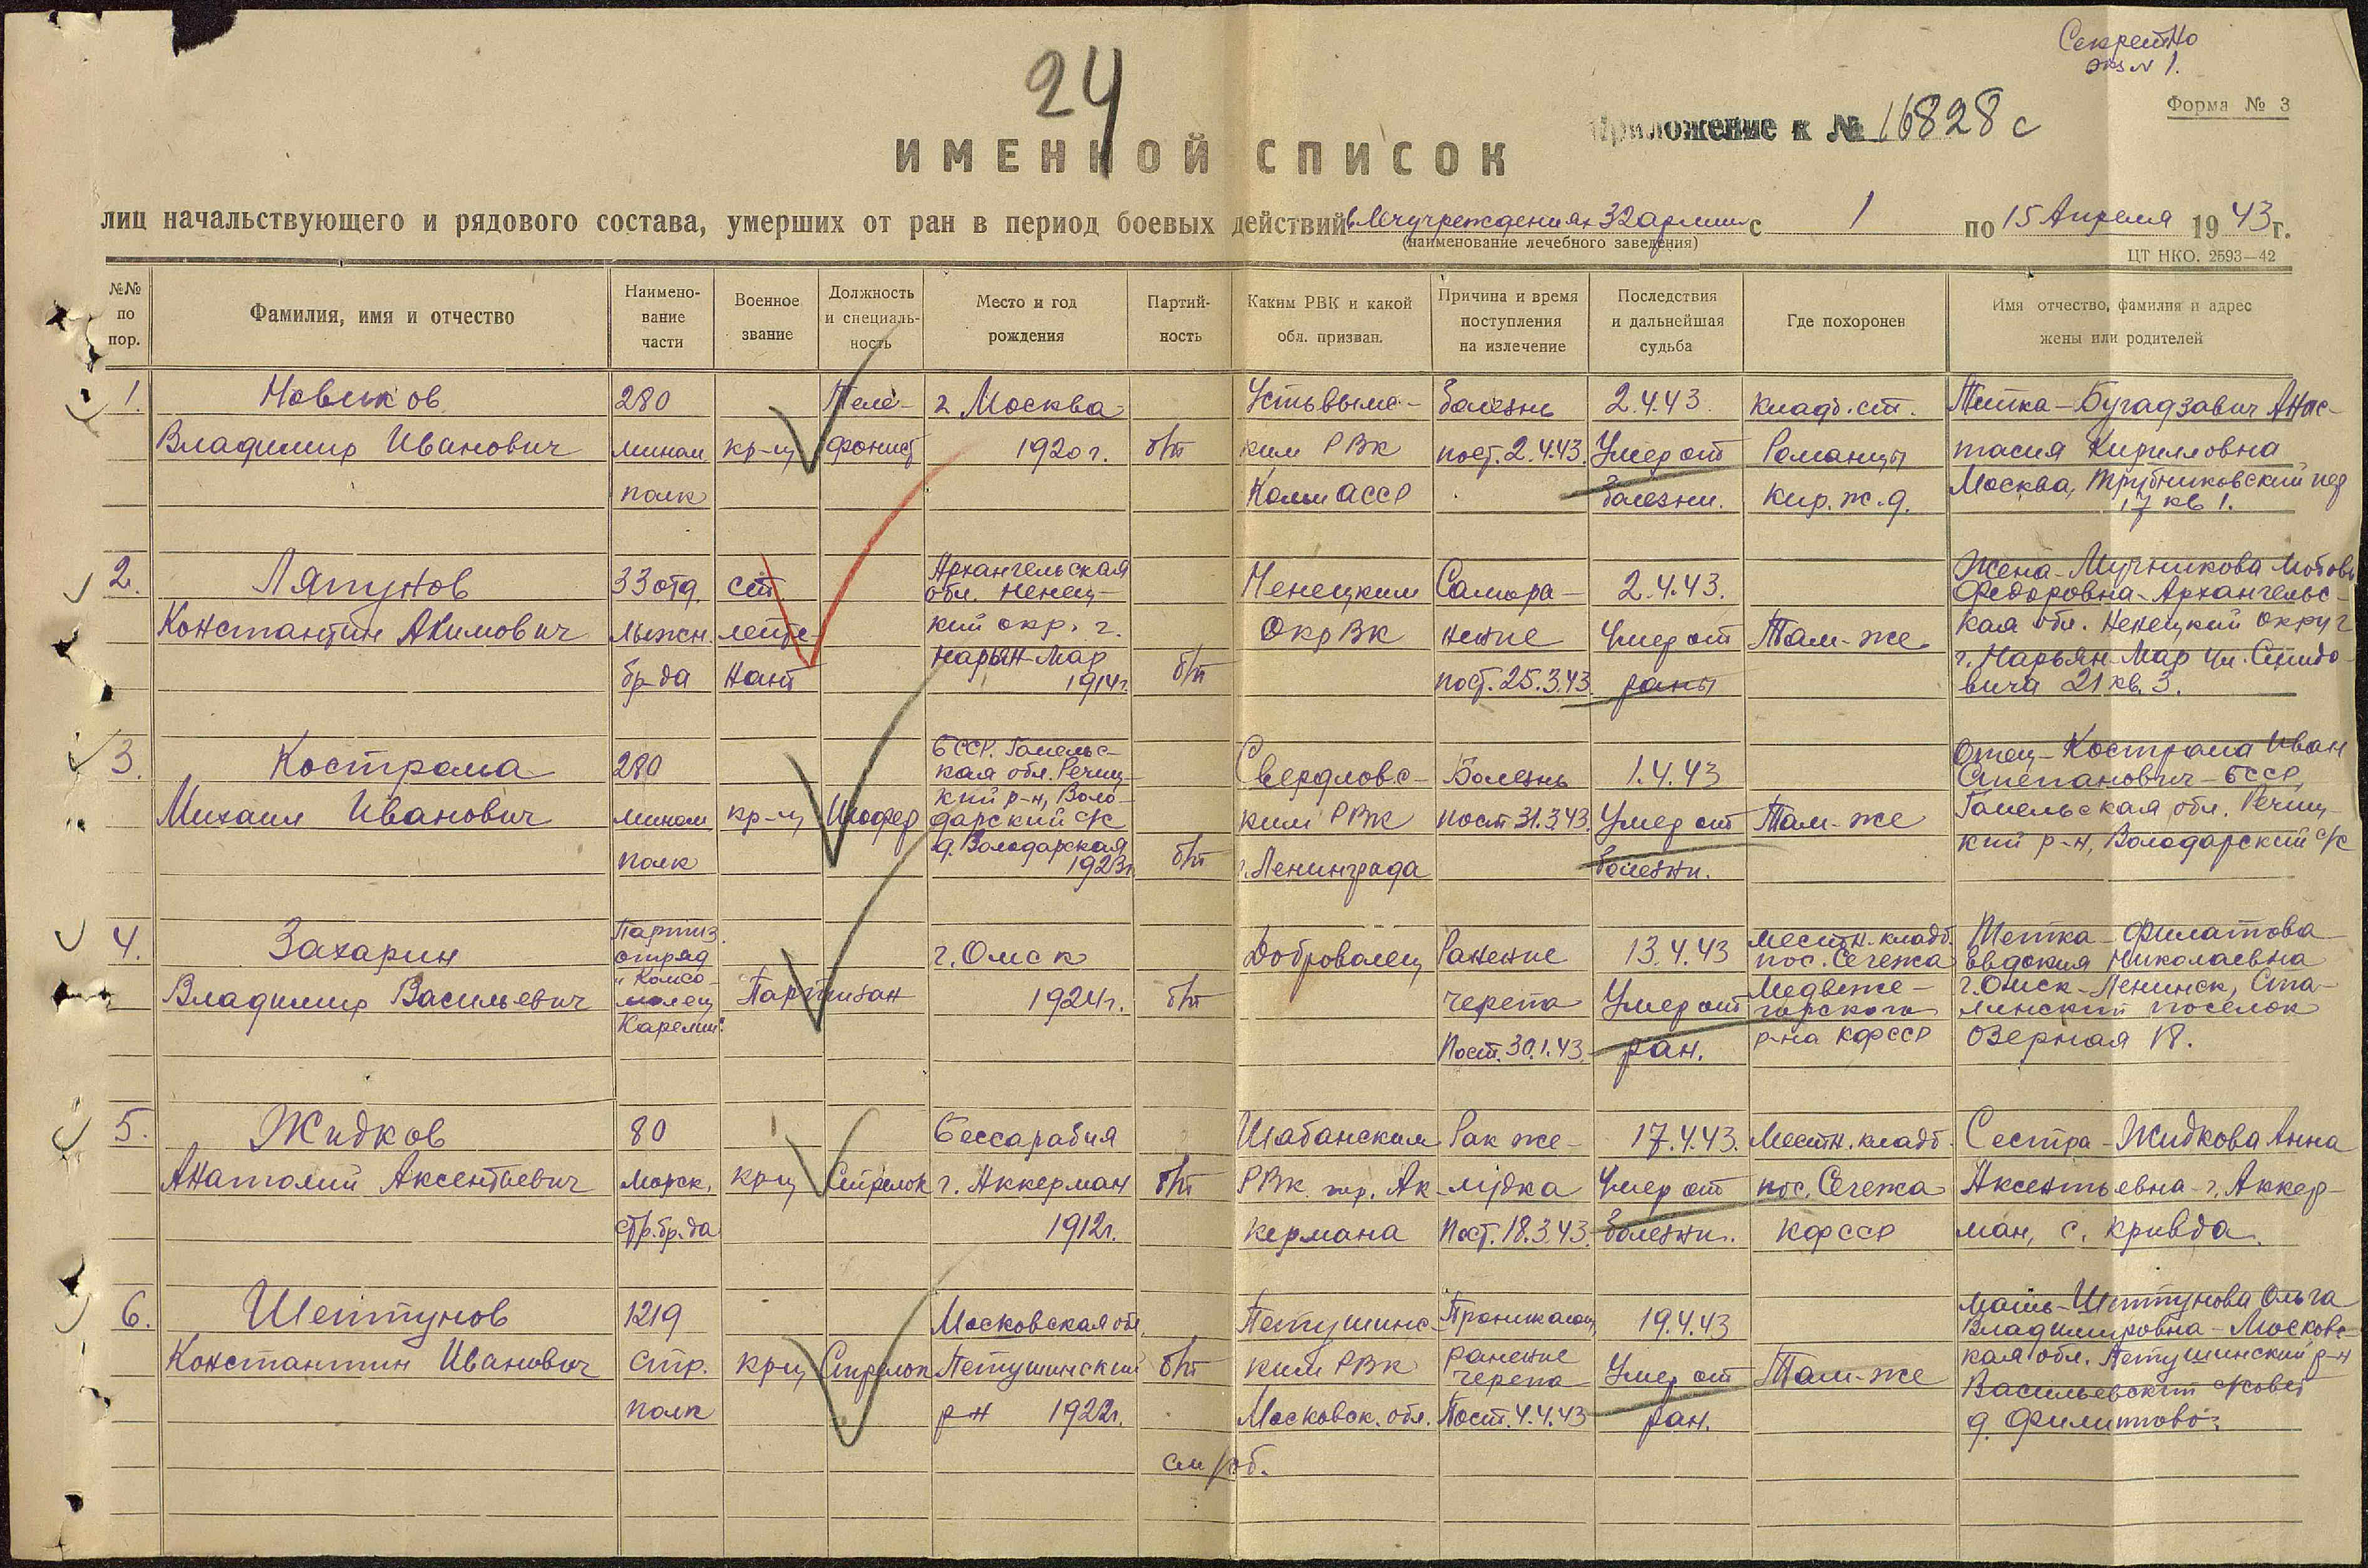 Секретно
экз N 1.
24
Форма № 3
Приложение к № 16828 с
ИМЕННОЙ СПИСОК
лиц начальствующего и рядового состава, умерших от ран в период боевых действий в Лечучреждениях 32 армии с 1 по 15 Апреля 1943 г.
(наименование лечебного заведения)
ЦТ НКО. 2593—42
№№ по пор.
Фамилия, имя и отчество
Наимено-
вание
части
Военное
звание
Должность
и специаль-
ность
Место и год
рождения
Партий-
ность
Каким РВК и какой
обл. призван.
Причина и время
поступления
на излечение
Последствия
и дальнейшая
судьба
Где похоронен
Имя отчество, фамилия и адрес
жены или родителей
1.
Новиков
Владимир Иванович
280
мином
полк
кр-ц
Теле-
фонист
г. Москва
1920 г.
б/п
Устьвымс-
ким РВК
Коми АССР
Болезнь
пост. 2.4.43.
2.4.43.
Умер от
болезни.
Кладб. ст.
Романцы
Кир. ж.д.
Тетка - Бугадзавич Анас-
тасия Кирилловна
Москва, Трубниковский пер
17 кв 1.
2.
Ляпунов
Константин Акимович
33 отд.
лыжн.
бр-да
ст.
лейте-
нант
Архангельская
обл. Ненец-
кий окр. г.
Нарьян-Мар
1914 г.
б/п
Ненецким
Окр ВК
Самора-
нение
пост. 25.3.43
2.4.43.
Умер от
раны
Там-же
Жена - Мучникова
Федоровна - Архангельс-
кая обл. Ненецкий округ
г. Нарьян-Мар ул. Смидо-
вича 21 кв. 3.
3.
Кострома
Михаил Иванович
280
мином
полк
кр-ц
Шофер
БССР. Гомельс-
кая обл. Речиц-
кий р-н, Воло-
дарский с/с
д. Володарская
1923 г.
б/п
Свердловс-
ким РВК
г. Ленинграда
Болезнь
пост 31.3.43.
1.4.43
Умер от
болезни.
Там-же
Отец - Кострома Иван
Степанович - БССР,
Гомельская обл. Речиц-
кий р-н, Володарский с/с
4.
Захарин
Владимир Васильевич
Партиз.
отряд
"Комсо-
молец
Карелии".
Партизан
г. Омск
1924 г.
б/п
Доброволец
Ранение
черепа
Пост. 30.1.43.
13.4.43
Умер от
ран.
Местн. кладб.
пос. Сегежа
Медвеже-
горского
р-на КФССР
Тетка - Филатова
Евдокия Николаевна
г. Омск - Ленинск, Ста-
линский поселок
Озерная 18.
5.
Жидков
Анатолий Аксентьевич
80
морск.
стр. бр-да
кр-ц
Стрелок
Бессарабия
г. Аккерман
1912 г.
б/п
Шабанским
РВК гор. Ак-
кермана
Рак же-
лудка
Пост. 18.3.43.
17.4.43.
Умер от
болезни.
Местн. кладб.
пос. Сегежа
КФССР
Сестра - Жидкова Анна
Аксентьевна - г. Аккер-
ман, с. Кривда.
6.
Шептунов
Константин Иванович
1219
стр.
полк
кр-ц
Стрелок
Московская обл.
Петушинский
р-н 1922 г.
б/п
Петушинс-
ким РВК
Московск. обл.
Проникающ
ранение
черепа
Пост. 4.4.43
19.4.43
Умер от
ран.
Там-же
Мать - Шептунова Ольга
Владимировна - Московс-
кая обл. Петушинский р-н
Васильевский с/совет
д. Филиппово.
см/об.